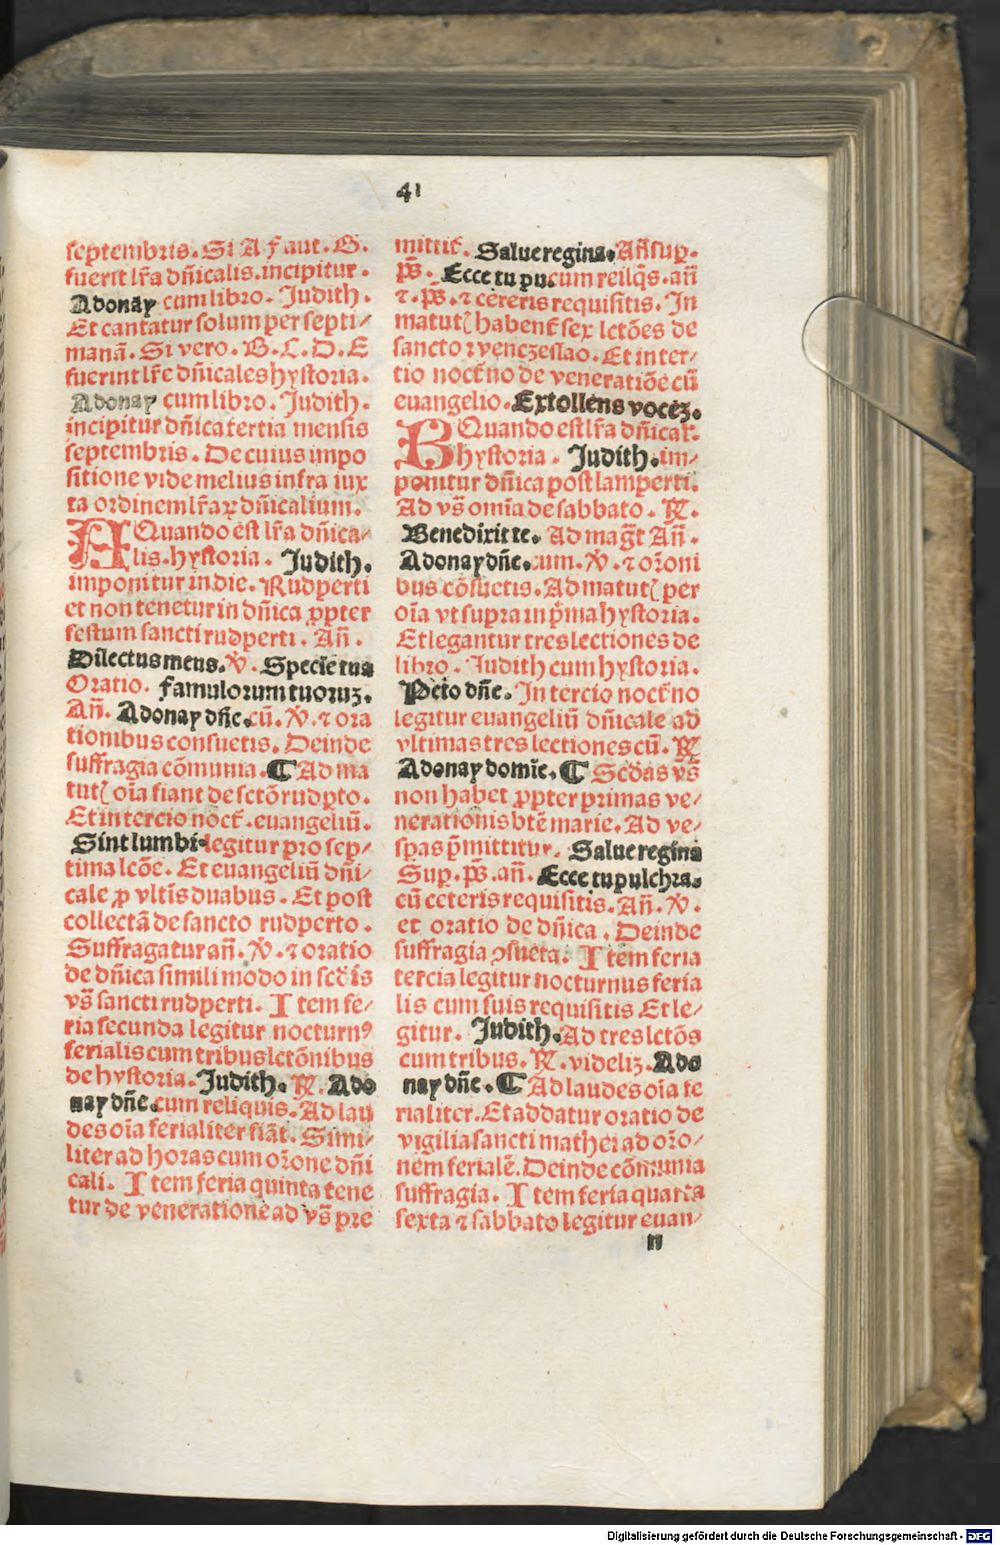 41
septembris. Si A f aut. G.
fuerit lr̃a dñicalis. incipitur.
Adonay cum libro. Judith.
Et cantatur solum per septi/
manã. Si vero. B. C. D. E
fuerint lr̃e dñicales hystoria.
Adonay cum libro. Judith.
incipitur dñica tertia mensis
septembris. De cuius impo
sitione vide melius infra iux
ta ordinem lr̃aꝝ dñicalium.
A Quando est lr̃a dñica/
lis. hystoria. Judith.
imponitur in die. Rudperti
et non tenetur in dñica ꝓpter
festum sancti rudperti. Añ.
Dilectus meus. ℣. Specie tua
Oratio. famulorum tuoruz.
Añ. Adonay dñe. cũ. ℣. ⁊ ora
tionibus consuetis. Deinde
suffragia cõmunia. ¶ Ad ma
tutꝭ oĩa fiant de sctõ rudꝑto.
Et in tercio noct̃. euangeliũ.
Sint lumbi. legitur pro sep/
tima lcõe. Et euangeliũ dñi/
cale ꝓ vltĩs duabus. Et post
collectã de sancto rudperto.
Suffragatur añ. ℣. ⁊ oratio
de dñica simili modo in scd̃is
vs̃ sancti rudperti. Item fe/
ria secunda legitur nocturnꝰ
ferialis cum tribus lctõnibus
de hystoria. Judith. ℟. Ado
nay dñe. cum reliquis. Ad lau
des oĩa ferialiter fiãt. Simi/
liter ad horas cum or̃one dñi
cali. Item feria quinta tene
tur de veneratione ad vs̃ pre
mittit̃. Salue regina. Añ sup.
ps̃. Ecce tu pu. cum reilq̃s. añ
⁊. ps̃. ⁊ cereris requisitis. In
matutꝭ habent̃ sex lctões de
sancto ⁊ venczeslao. Et in ter/
tio noct̃no de veneratiõe cũ
euangelio. Extollens vocez.
B Quando est lr̃a dñical'.
hystoria. Judith. im/
ponitur dñica post lamperti.
Ad vs̃ omĩa de sabbato. ℟.
Benedixit te. Ad mag̃t Añ.
Adonay dñe. cum. ℣. ⁊ or̃oni
bus cõsuetis. Ad matutꝭ per
oĩa vt supra in p̃ma hystoria.
Et legantur tres lectiones de
libro. Judith cum hystoria.
Peto dñe. In tercio noct̃no
legitur euangeliũ dñicale ad
vltimas tres lectiones cũ. ℟
Adonay domĩe. ¶ Scd̃as vs̃
non habet ꝓpter primas ve/
nerationis btẽ marie. Ad ve/
sꝑas p̃mittitur. Salue regina
Sup. ps̃. añ. Ecce tu pulchra.
cũ ceteris requisitis. Añ. ℣.
et oratio de dñica. Deinde
suffragia ꝯsueta. Item feria
tercia legitur nocturnus feria
lis cum suis requisitis Et le/
gitur. Judith. Ad tres lctõs
cum tribus. ℟. videliz. Ado
nay dñe. ¶ Ad laudes oĩa fe
rialiter. Et addatur oratio de
vigilia sancti mathei ad or̃o/
nem ferialẽ. Deinde cõmunia
suffragia. Item feria quarta
sexta ⁊ sabbato legitur euan/
Digitalisierung gefördert durch die Deutsche Forschungsgemeinschaft - DFG